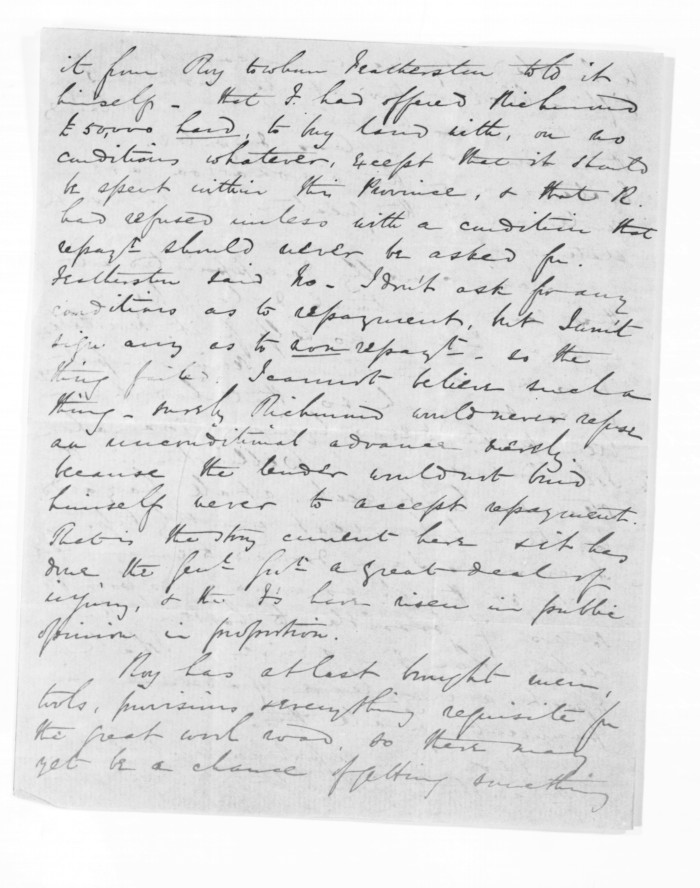 it from Roy to whom Featherston told it
himself - that F. had offered Richmond
£50,000 hard, to buy land with, on no
conditions whatever, except that it should
be spent within this Province, & that R.
had refused unless with a condition that
repayt. should never be asked for.
Featherston said No - I don't ask for any
conditions as to repayment, but I won't
sign any as to non repayt. - so the
thing failed. I cannot believe such a
thing - surely Richmond would never refuse
an unconditional advance merely
because the lender would not bind
himself never to accept repayment.
That is the story current here & it has
done the Genl. Govt. a great deal of
injury, & the F's have risen in public
opinion in proportion.
Roy has at last bought men,
tools, provisions & everything requisite for
the great work road, so there may
yet be a chance of getting something